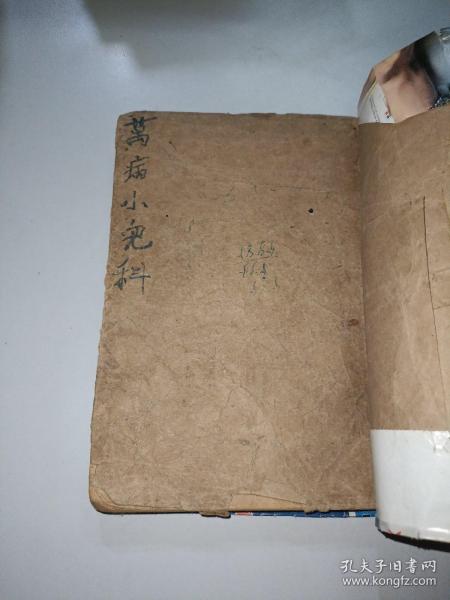 萬病小兒科
孔夫子旧书网
www.kongfz.com